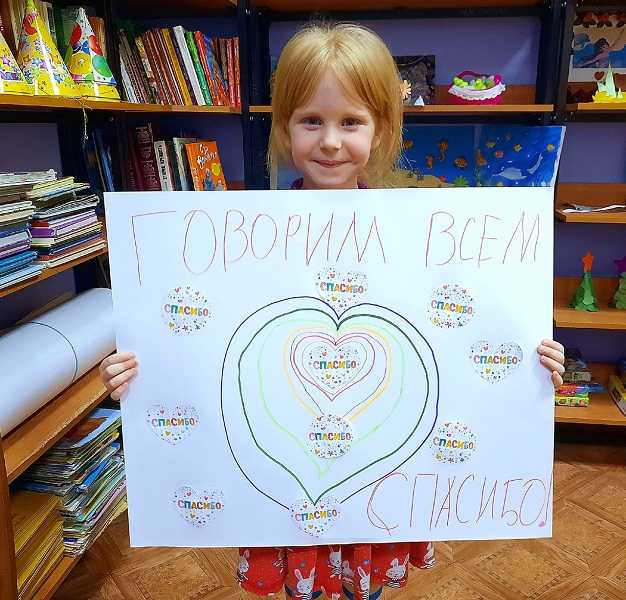 ГОВОРИМ ВСЕМ
СПАСИБО
СПАСИБО
СПАСИБО
СПАСИБО
СПАСИБО
СПАСИБО
СПАСИБО
СПАСИБО
СПАСИБО
СПАСИБО
СПАСИБО!